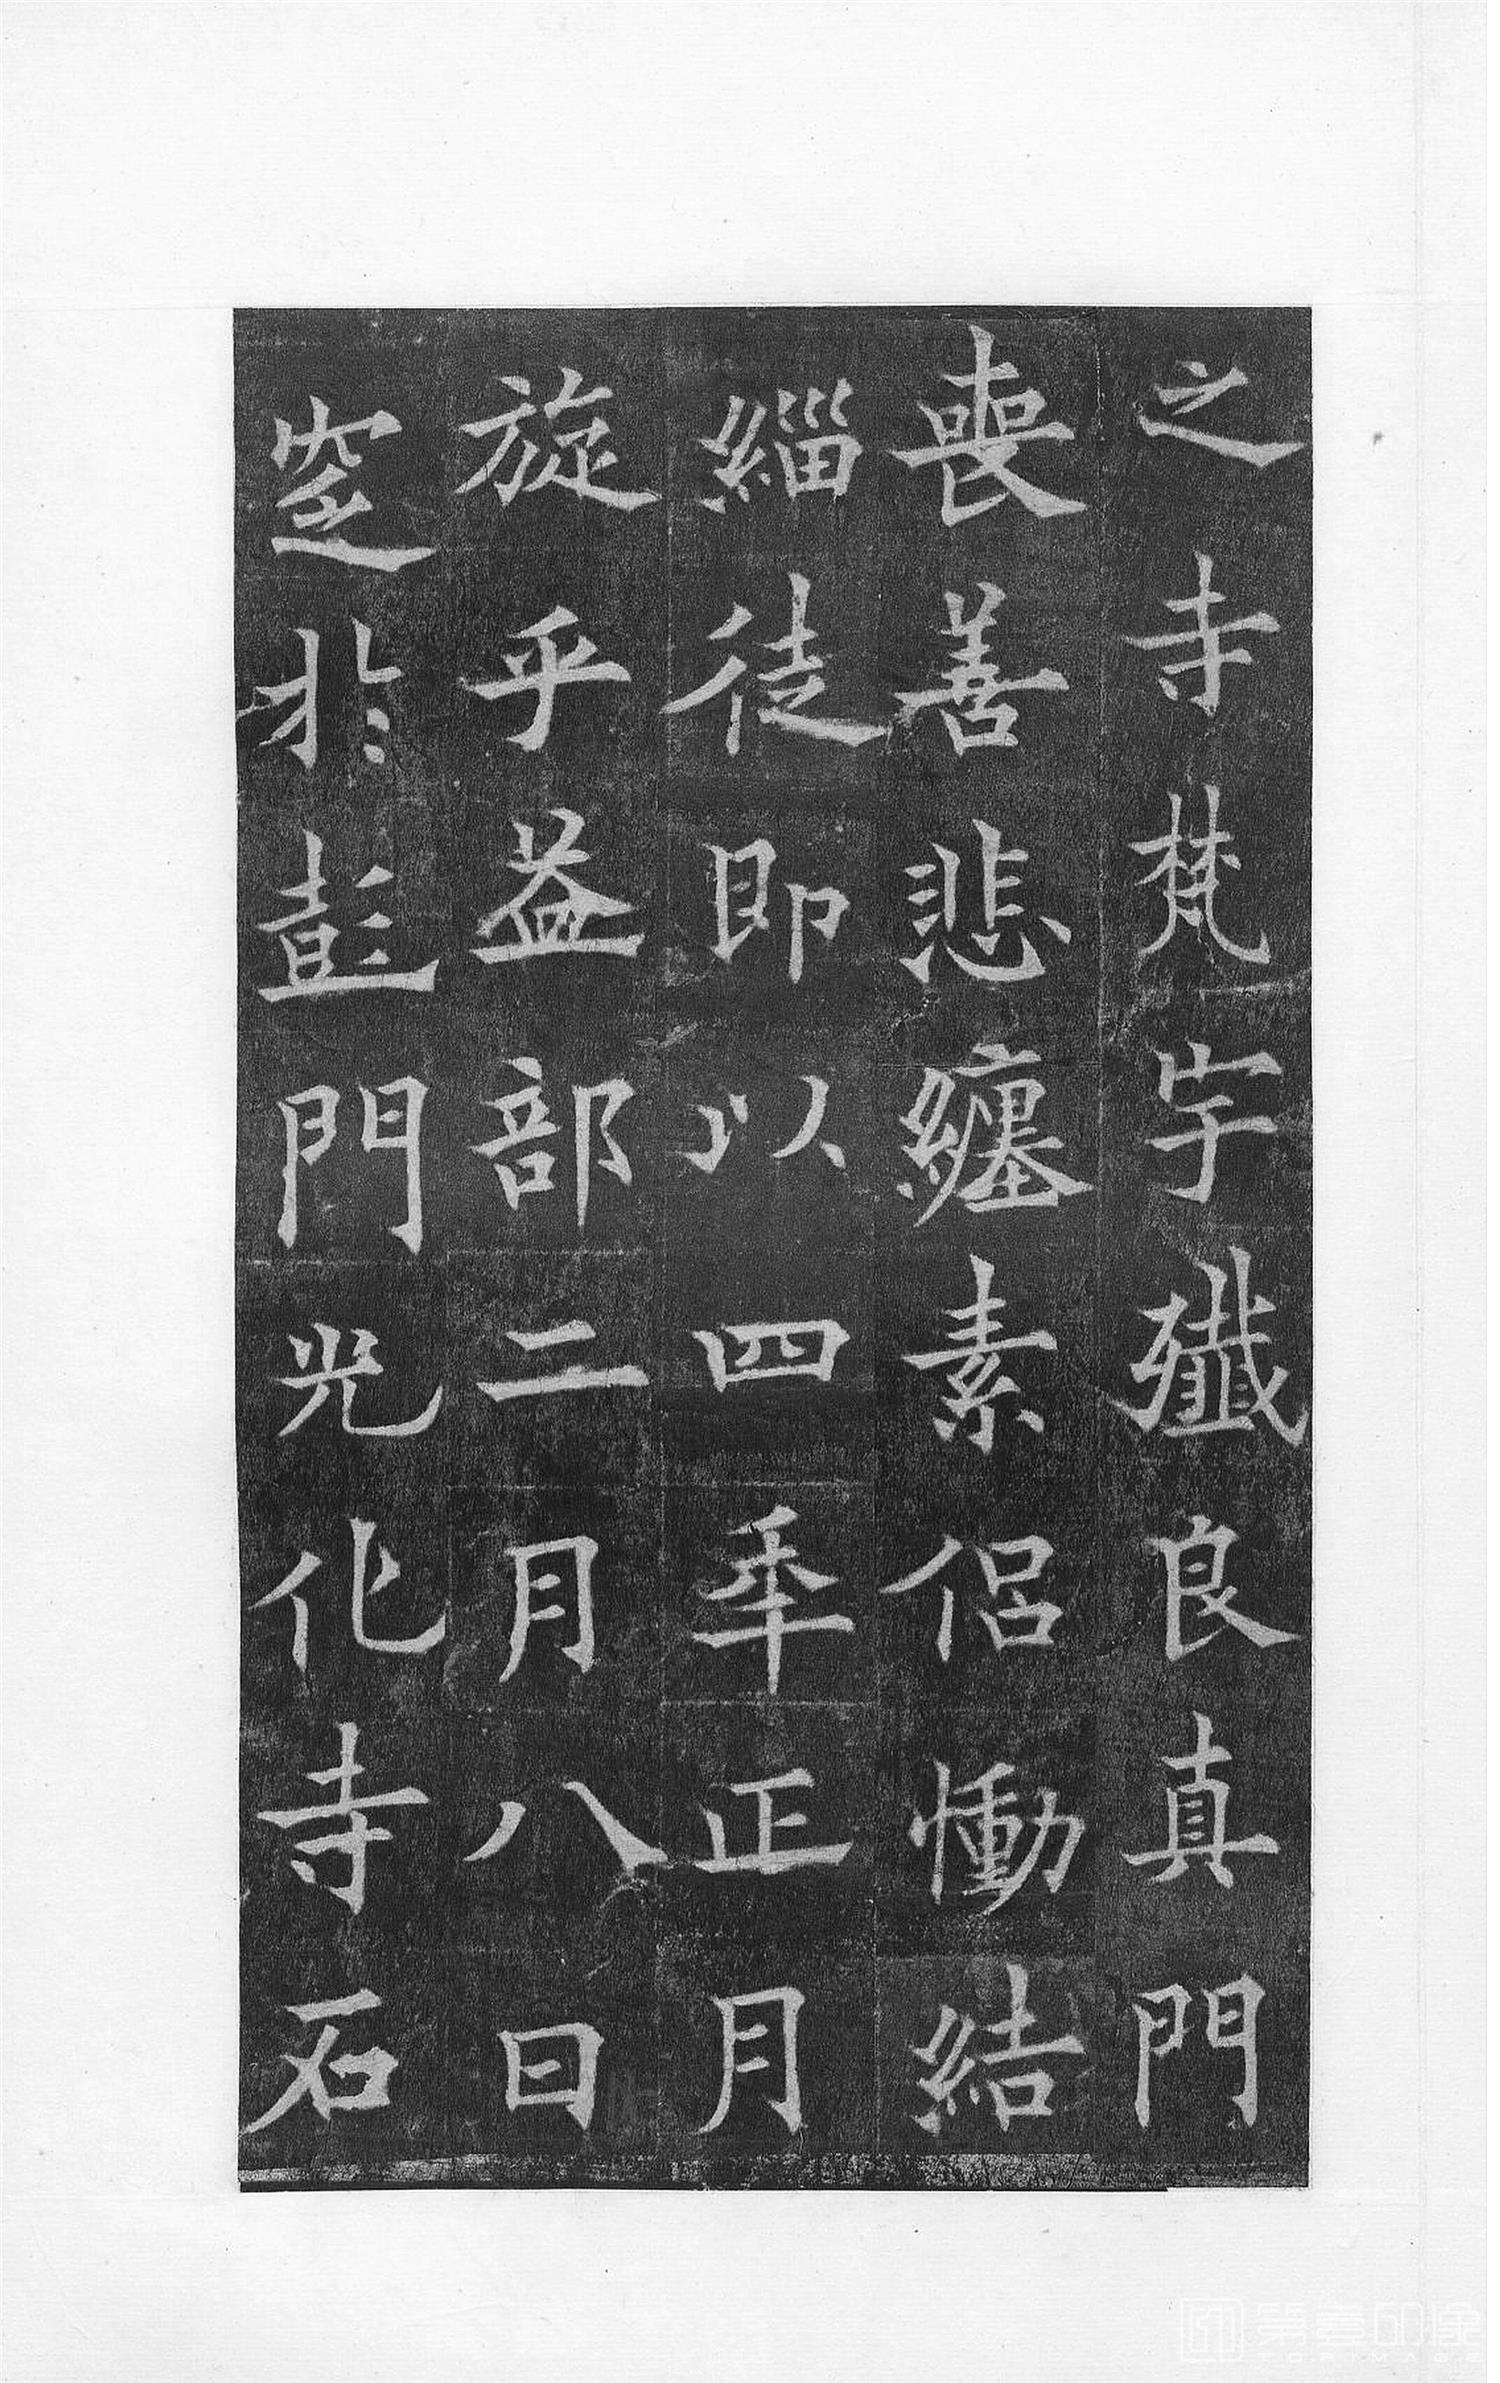 之寺梵宇殱良真門
喪善悲纏素侣慟結
緇徒即以四年正月
旋乎益部二月八日
窆於彭門光化寺石
第壹印像
TOPIMAGE